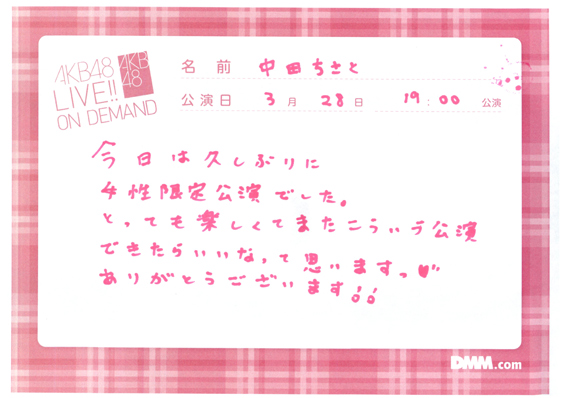 AKB48
LIVE!!
ON DEMAND
AKB
48
名前 中田ちさと
公演日 3月28日 19:00 公演
今日は久しぶりに
女性限定公演でした。
とっても楽しくてまたこういう公演
できたらいいなって思いますっ♥
ありがとうございます!!
DMM.com